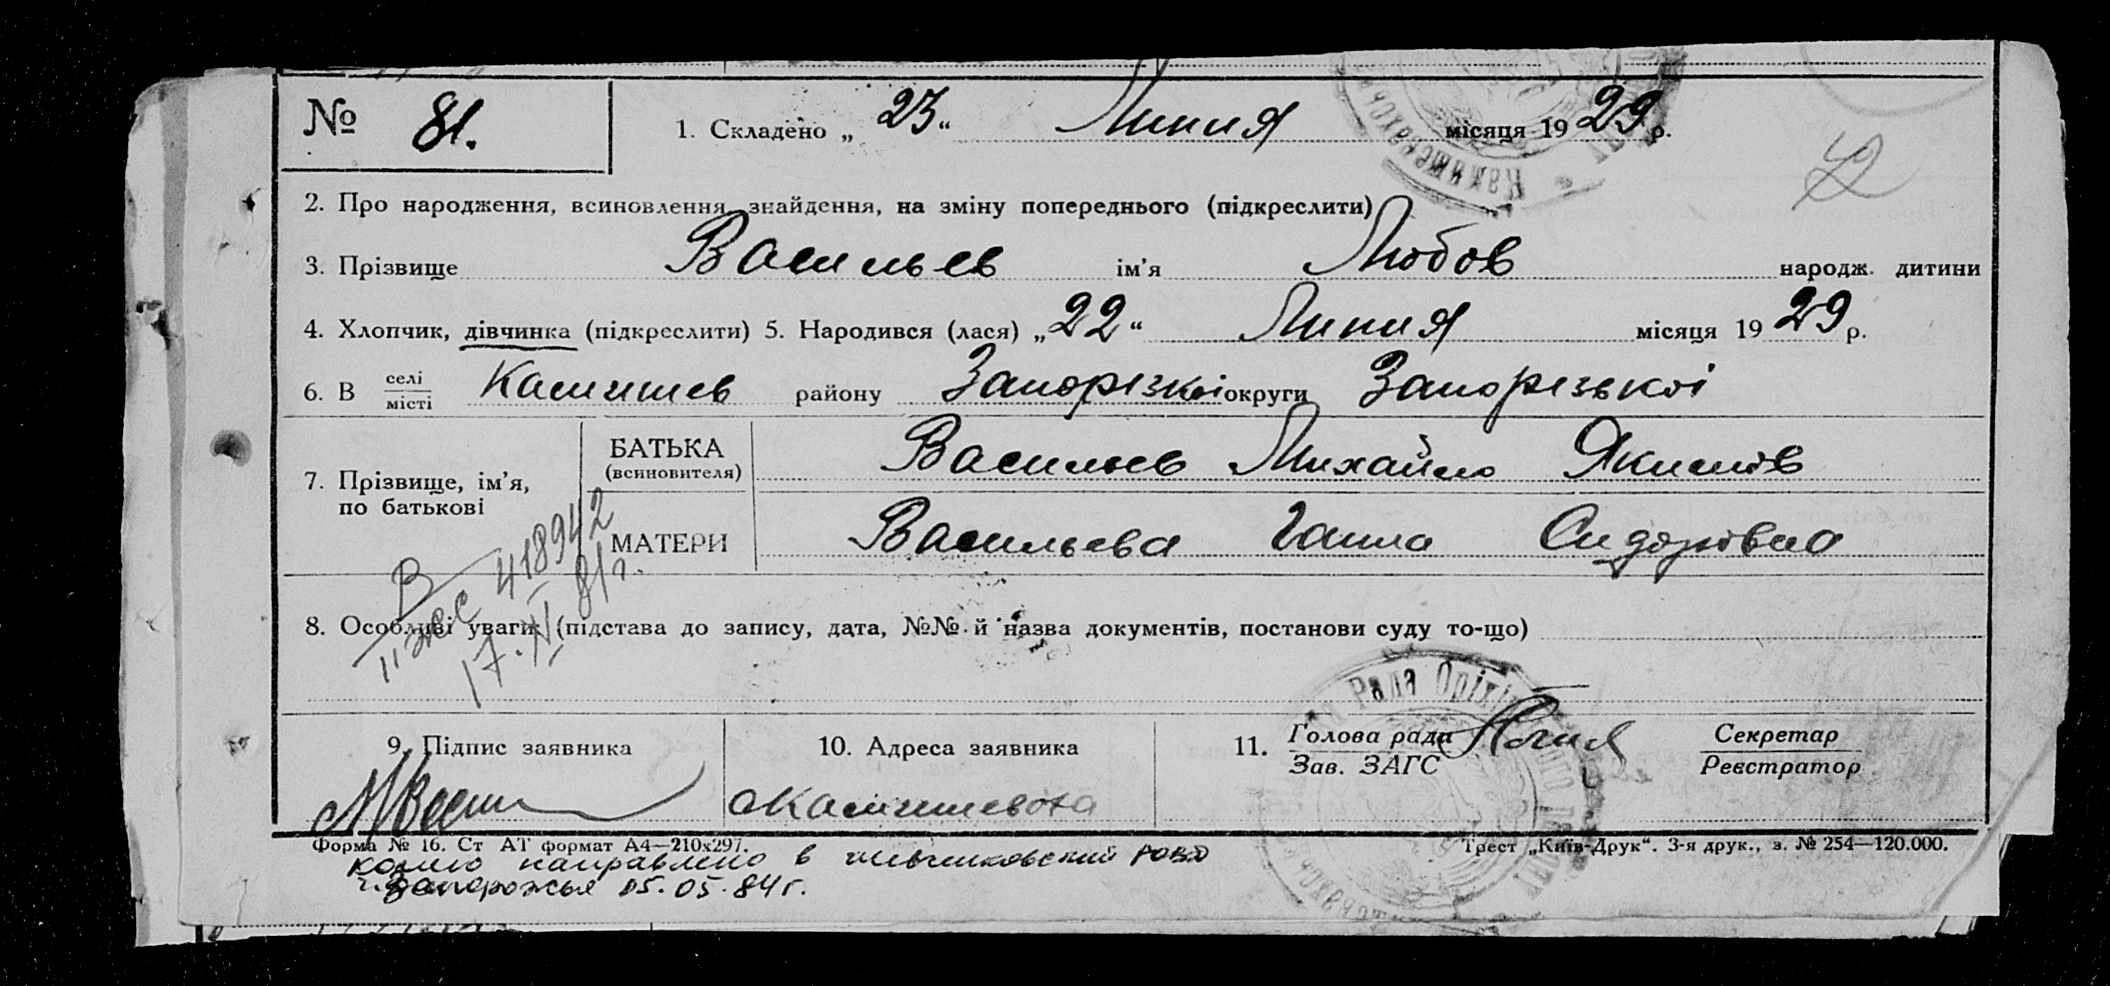 № 81.
1. Складено „ 23 “ Липня місяця 1929 р.
2. Про народження, всиновлення, знайдення, на зміну попереднього (підкреслити)
3. Прізвище Васильєв ім'я Любов народж. дитини
4. Хлопчик, дівчинка (підкреслити) 5. Народився (лася) „ 22 “ Липня місяця 1929 р.
6. В селі місті Камишев району Запорізкоі округи Запорізькоі
7. Прізвище, ім'я, по батькові
БАТЬКА (всиновителя) Васильєв Михайло Якимів
МАТЕРИ Васильєва Ганна Сидорівна
В
418942
17.XI.81г.
8. Особливі уваги (підстава до запису, дата, №№ й назва документів, постанови суду то-що)
9. Підпис заявника
10. Адреса заявника
11. Голова ради
Зав. ЗАГС
Секретар
Реєстратор
Рада Оріхі
Форма № 16. Ст АТ формат А4—210х297.
Трест „Київ-Друк“. 3-я друк., з. № 254—120.000.
копию направлено в шевченковский РОВД
г. Запорожья 05.05.84г.